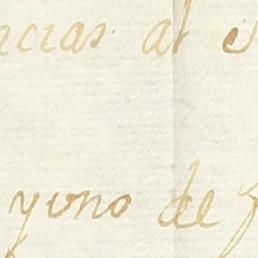 ncias al
yuno de